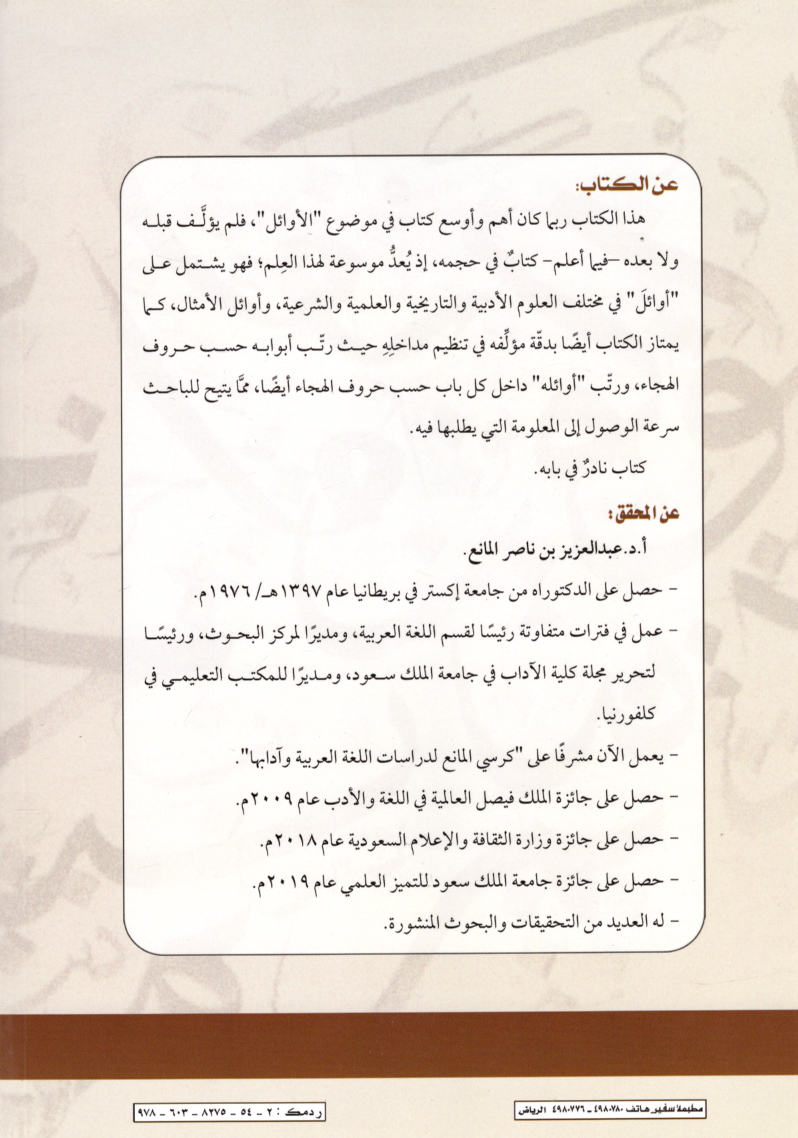 عن الكتاب:
هذا الكتاب ربما كان أهم وأوسع كتاب في موضوع "الأوائل"، فلم يؤلَّف قبله
ولا بعده –فيما أعلم– كتابٌ في حجمه، إذ يُعدُّ موسوعة لهذا العِلم؛ فهو يشتمل على
"أوائلَ" في مختلف العلوم الأدبية والتاريخية والعلمية والشرعية، وأوائل الأمثال، كما
يمتاز الكتاب أيضًا بدقّة مؤلِّفه في تنظيم مداخلِهِ حيث رتّب أبوابه حسب حروف
الهجاء، ورتّب "أوائله" داخل كل باب حسب حروف الهجاء أيضًا، ممَّا يتيح للباحث
سرعة الوصول إلى المعلومة التي يطلبها فيه.
كتاب نادرٌ في بابه.
عن المحقق:
أ.د.عبدالعزيز بن ناصر المانع.
– حصل على الدكتوراه من جامعة إكستر في بريطانيا عام ١٣٩٧هـ/ ١٩٧٦م.
– عمل في فترات متفاوتة رئيسًا لقسم اللغة العربية، ومديرًا لمركز البحوث، ورئيسًا
لتحرير مجلة كلية الآداب في جامعة الملك سعود، ومديرًا للمكتب التعليمي في
كلفورنيا.
– يعمل الآن مشرفًا على "كرسي المانع لدراسات اللغة العربية وآدابها".
– حصل على جائزة الملك فيصل العالمية في اللغة والأدب عام ٢٠٠٩م.
– حصل على جائزة وزارة الثقافة والإعلام السعودية عام ٢٠١٨م.
– حصل على جائزة جامعة الملك سعود للتميز العلمي عام ٢٠١٩م.
– له العديد من التحقيقات والبحوث المنشورة.
مطبعة سفير هاتف ٤٩٨٠٧٨٠ – ٤٩٨٠٧٧٦ الرياض
ردمك : ٢ – ٥٤ – ٨٢٧٥ – ٦٠٣ – ٩٧٨